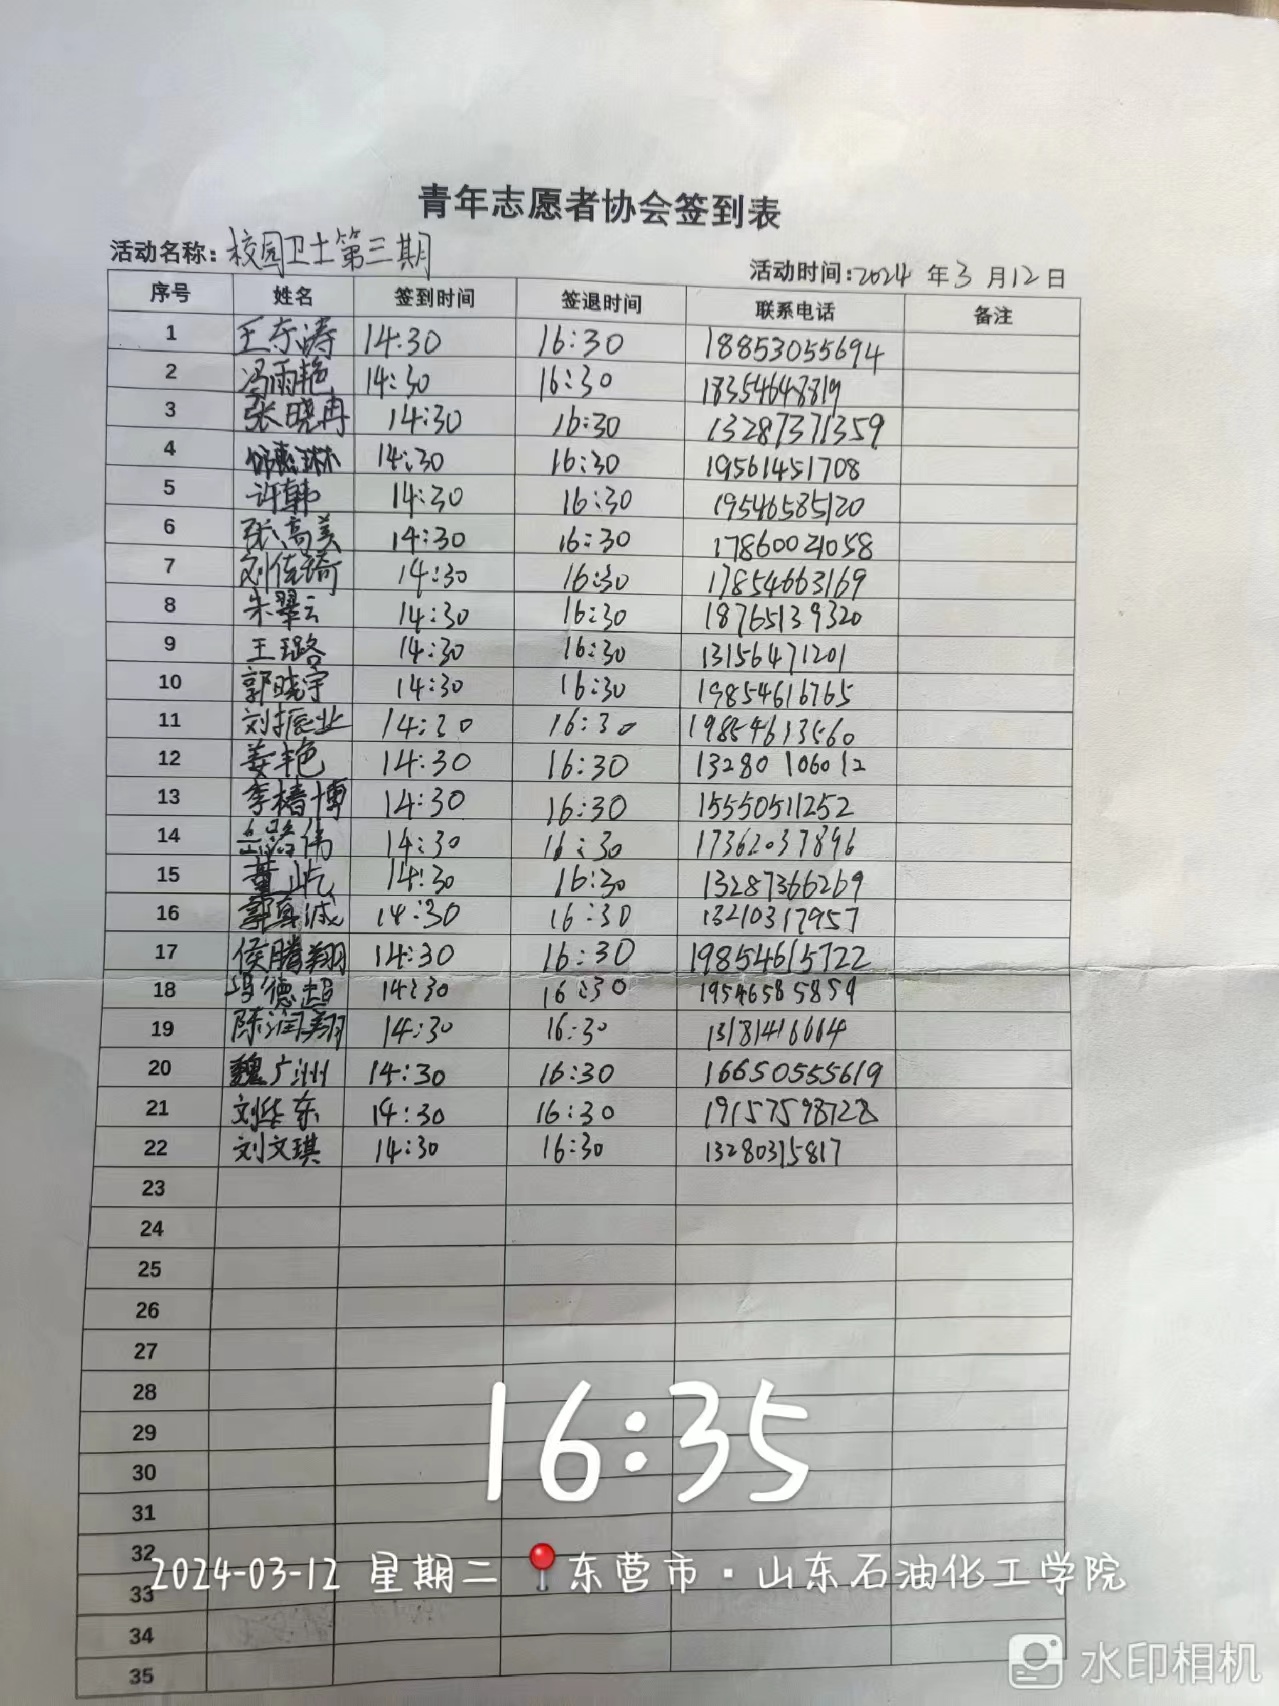 青年志愿者协会签到表
活动名称:校园卫士第三期 活动时间:2024 年 3 月 12 日
序号 姓名 签到时间 签退时间 联系电话 备注
1 王东涛 14:30 16:30 18853055694
2 冯雨艳 14:30 16:30 18354648819
3 张晓冉 14:30 16:30 13287371359
4 14:30 16:30 19561451708
5 许韩 14:30 16:30 19546585120
6 张高美 14:30 16:30 17860021058
7 刘佳琦 14:30 16:30 17854663169
8 朱翠云 14:30 16:30 18765139320
9 王璐 14:30 16:30 13156471201
10 郭晓宇 14:30 16:30 19854616765
11 刘振业 14:30 16:30 19854613560
12 姜艳 14:30 16:30 13280106012
13 李椿博 14:30 16:30 15550511252
14 14:30 16:30 17362037896
15 董屹 14:30 16:30 13287366269
16 郭真诚 14:30 16:30 13210317957
17 侯腾翔 14:30 16:30 19854615722
18 冯德超 14:30 16:30 19546585859
19 陈润翔 14:30 16:30 13181416664
20 魏广洲 14:30 16:30 16650555619
21 刘华东 14:30 16:30 19157598728
22 刘文琪 14:30 16:30 13280315817
23
24
25
26
27
28
29
30
31
32
33
34
35
16:35
2024-03-12 星期二 东营市·山东石油化工学院
水印相机